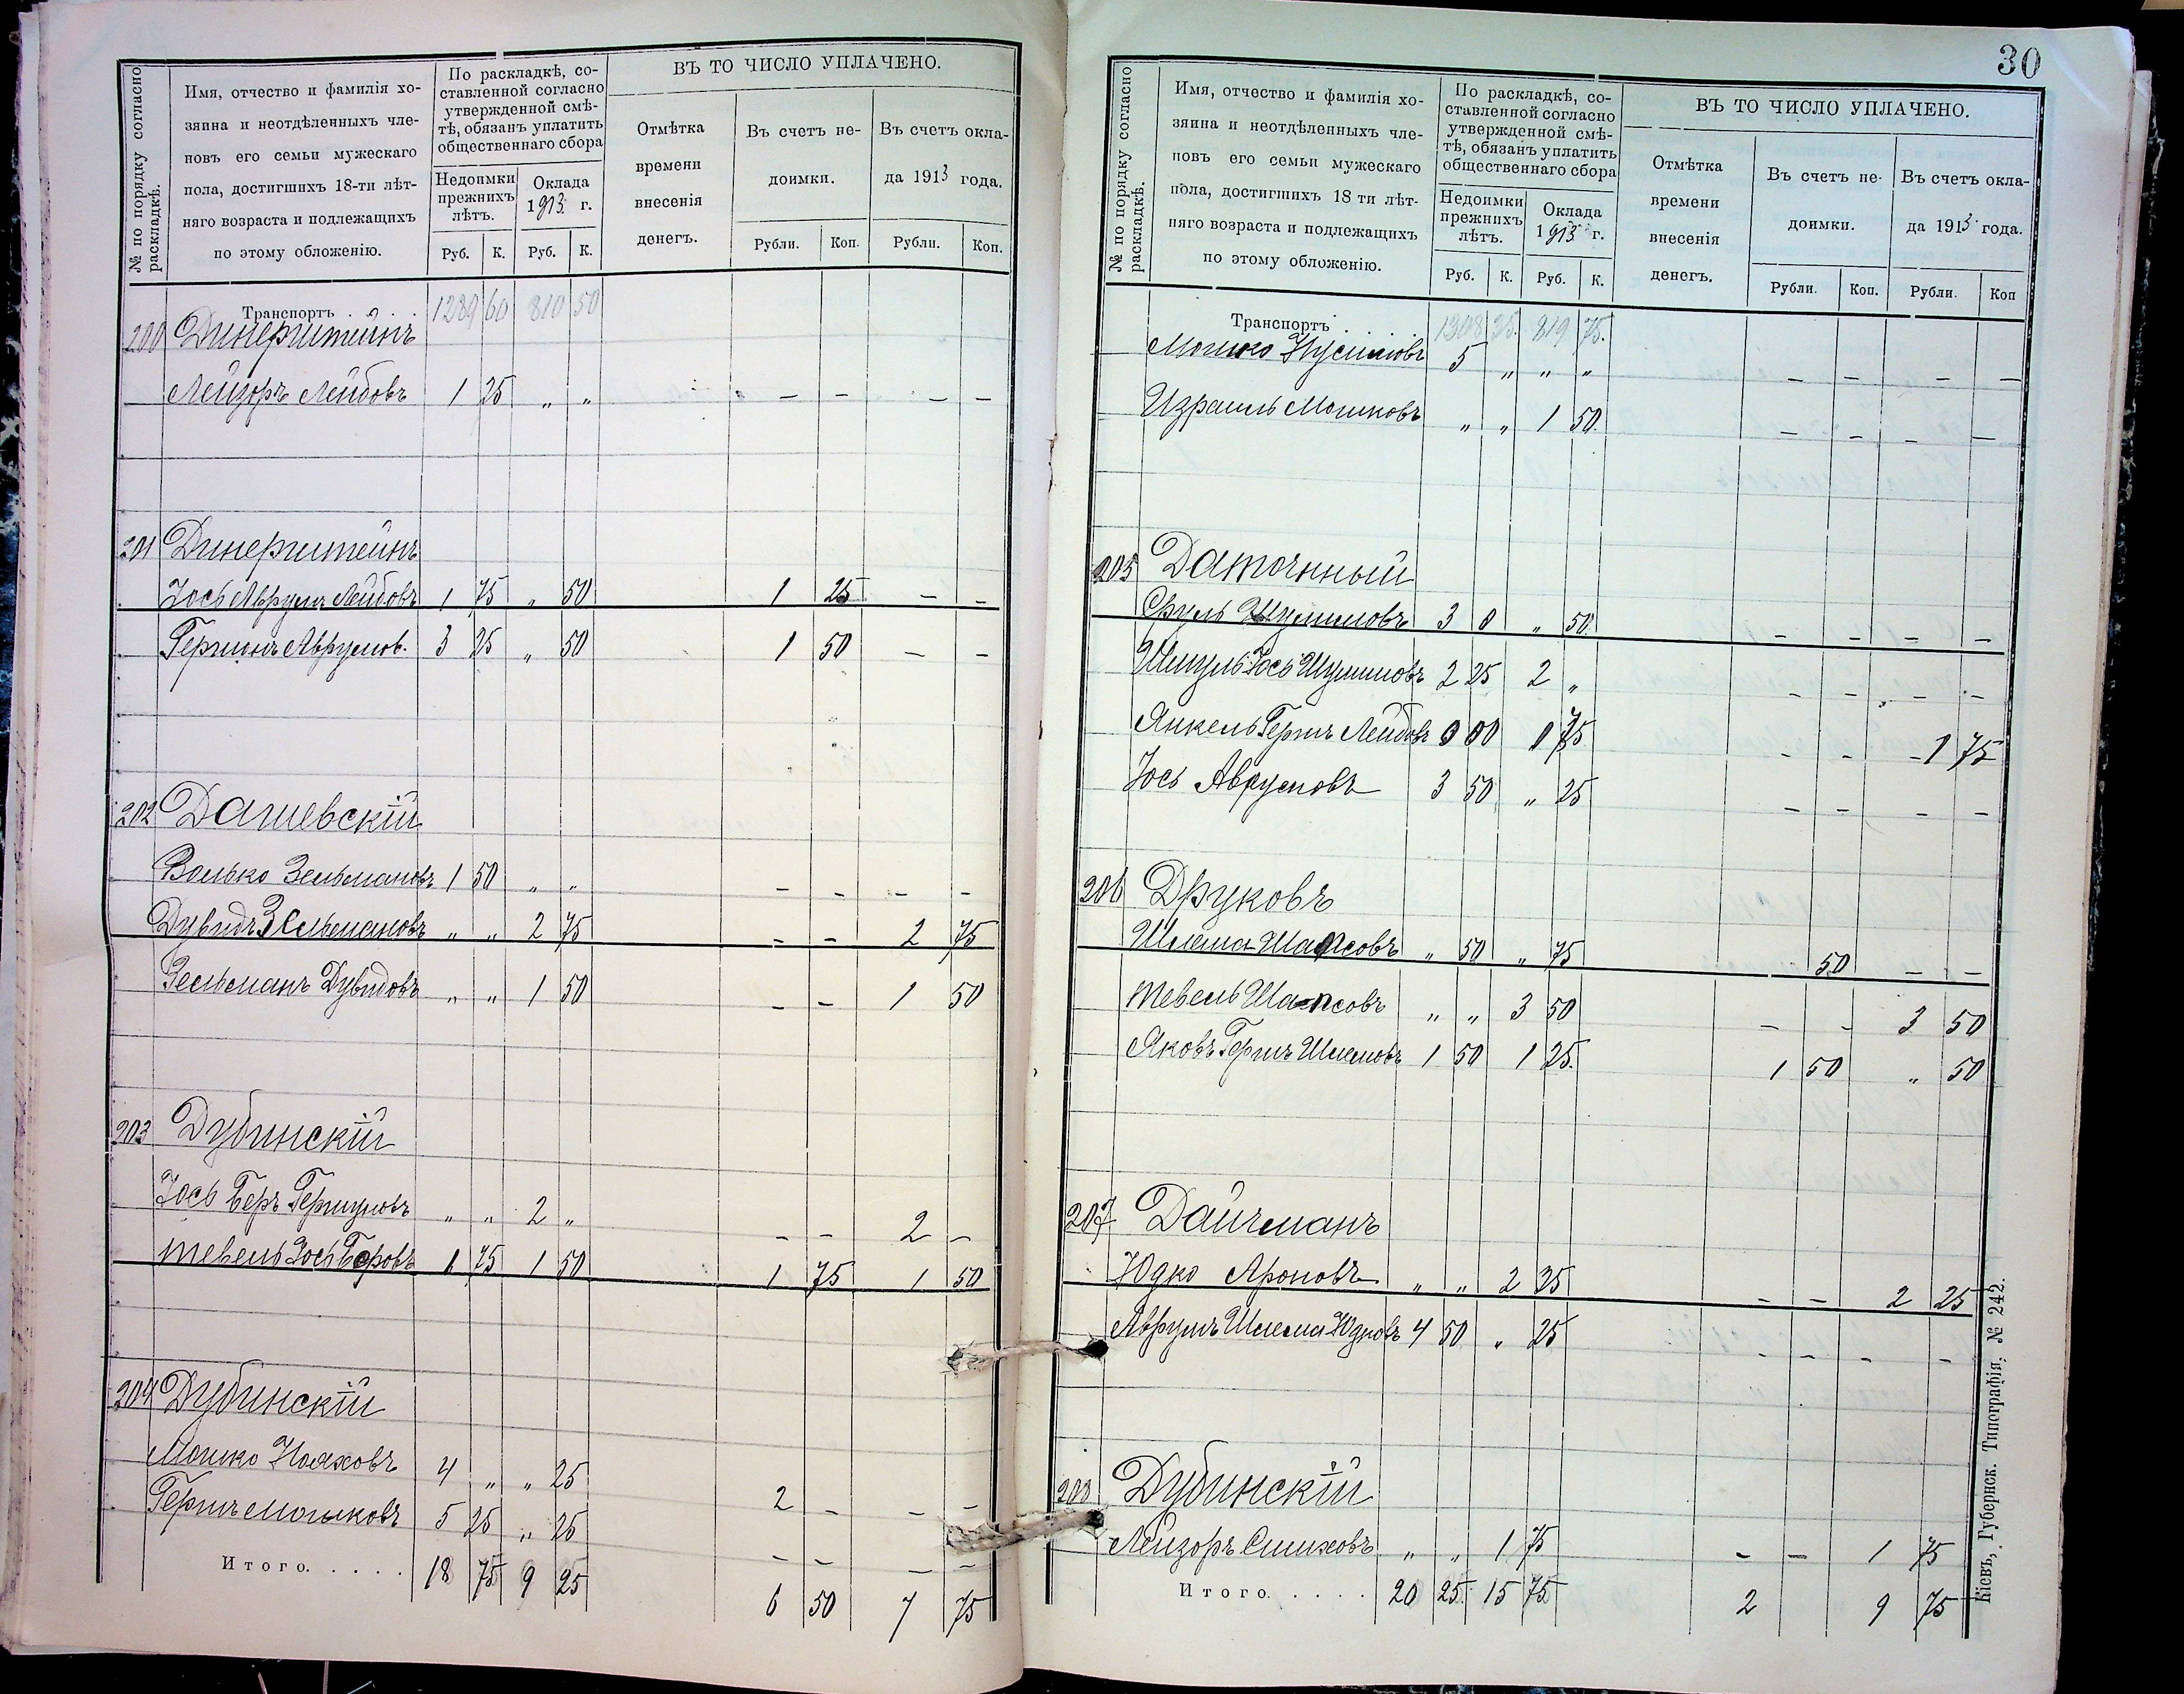 № по порядку согласно раскладкѣ.
Имя, отчество и фамилія хо-
зяина и неотдѣленныхъ чле-
новъ его семьи мужескаго
пола, достигшихъ 18-ти лѣт-
няго возраста и подлежащихъ
по этому обложенію.
По раскладкѣ, со-
ставленной согласно
утвержденной смѣ-
тѣ, обязанъ уплатить
общественнаго сбора
Недоимки
прежнихъ
лѣтъ.
Оклада
1913 г.
Руб. К. Руб. К.
ВЪ ТО ЧИСЛО УПЛАЧЕНО.
Отмѣтка
времени
внесенія
денегъ.
Въ счетъ не-
доимки.
Въ счетъ окла-
да 1913 года.
Рубли. Коп. Рубли. Коп.
Транспортъ . . . . 1289 60 810 50
200 Динерштейнъ
Лейзоръ Лейбовъ 1 25 „ „ – – – –
201 Динерштейнъ
Іось Аврумъ Лейбовъ 1 75 „ 50 1 25 – –
Гершонъ Аврумов. 3 25 „ 50 1 50 – –
202 Дашевскій
Волько Зельмановъ 1 50 „ „ – – – –
Дувидъ Зельмановъ „ „ 2 75 – – 2 75
Зельманъ Дувидовъ „ „ 1 50 – – 1 50
203 Дубинскій
Іось Беръ Гершуновъ „ „ 2 „ – – 2 –
Тевель Іось Беровъ 1 75 1 50 1 75 1 50
204 Дубинскій
Мошко Нояховъ 4 „ „ 25 2 – – –
Гершъ Мошковъ 5 25 „ 25 – – – –
Итого. . . . . 18 75 9 25 6 50 7 75
30
№ по порядку согласно раскладкѣ.
Имя, отчество и фамилія хо-
зяина и неотдѣленныхъ чле-
новъ его семьи мужескаго
пола, достигшихъ 18 ти лѣт-
няго возраста и подлежащихъ
по этому обложенію.
По раскладкѣ, со-
ставленной согласно
утвержденной смѣ-
тѣ, обязанъ уплатить
общественнаго сбора
Недоимки
прежнихъ
лѣтъ.
Оклада
1913 г.
Руб. К. Руб. К.
ВЪ ТО ЧИСЛО УПЛАЧЕНО.
Отмѣтка
времени
внесенія
денегъ.
Въ счетъ не-
доимки.
Въ счетъ окла-
да 1913 года.
Рубли. Коп. Рубли. Коп
Транспортъ . . . . 1308 35. 819 75.
Мошко 5 „ „ „ – – – –
Израиль Мошковъ „ „ 1 50. – – – –
205 Даточный
Сруль Шулимовъ 3 0 „ 50. – – – –
Шмуль Іось Шулимовъ 2 25 2 „ – – – –
Янкель Гершъ Лейбовъ 0 00 1 75 – – 1 75
Іось Аврумовъ 3 50 „ 25 – – – –
206 Друковъ
Шлема Шапсовъ „ 50 „ 75 50 – –
Тевель Шапсовъ „ „ 3 50 – – 3 50
Яковъ Гершъ Шлемовъ 1 50 1 25. 1 50 „ 50
207 Дайчманъ
Юдко Ароновъ „ „ 2 25 – – 2 25
Аврумъ Шлема Юдковъ 4 50 „ 25 – – – –
208 Дубинскій
Лейзоръ Симховъ „ „ 1 75 – – 1 75
Итого. . . . . 20 25. 15 75. 2 9 75
Кіевъ, Губернск. Типографія, № 242.